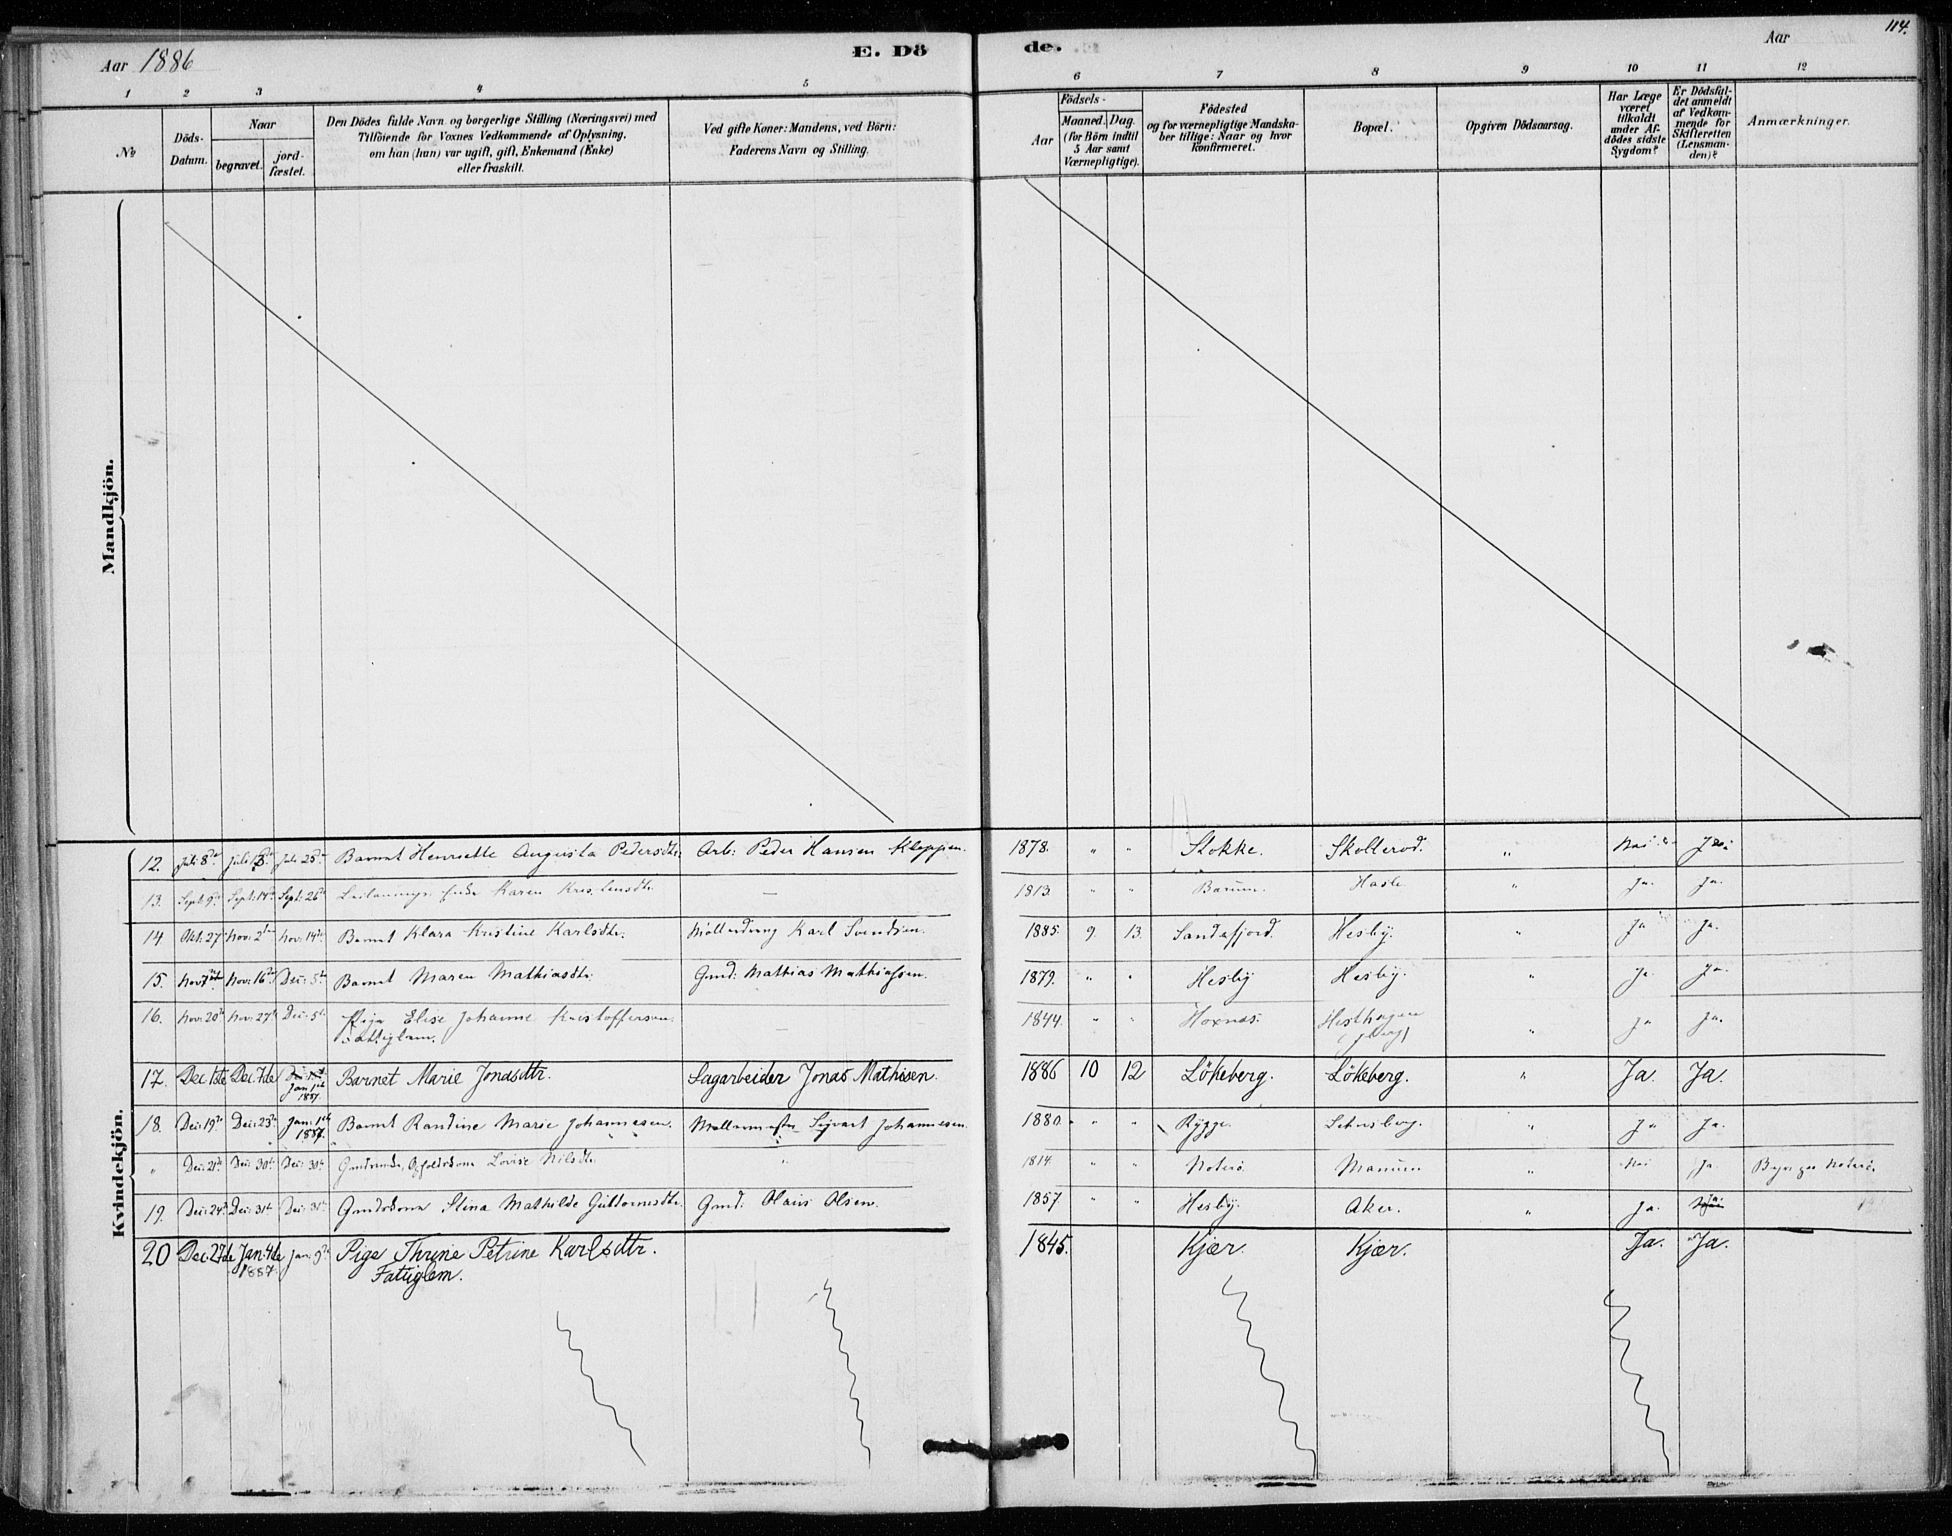 Aar 1886 E. Dö de. Aar 114.
1 2 3 4 5 6 7 8 9 10 11 12
No
Döds-Datum.
Naar
begravet.
jord-fæstet.
Den Dödes fulde Navn og borgerlige Stilling (Næringsvei) med
Tilföiende for Voxnes Vedkommende af Oplysning,
om han (hun) var ugift, gift, Enkemand (Enke)
eller fraskilt.
Ved gifte Koner: Mandens, ved Börn:
Faderens Navn og Stilling.
Födsels-
Aar
Maaned. Dag.
(for Börn indtil
5 Aar samt
Værnepligtige).
Födested
og for værnepligtige Mandska-
ber tillige: Naar og hvor
konfirmeret.
Bopæl.
Opgiven Dödsaarsag.
Har Læge
været
tilkaldt
under Af-
dödes sidste
Sygdom?
Er Dödsfal-
det anmeldt
af Vedkom-
mende for
Skifteretten
(Lensman-
den)?
Anmærkninger.
Mandkjön.
Kvindekjön.
12. Juli 8de Juli 13de Juli 25de Barnet Henriette Augusta Pedersdtr. Arb: Peder Hansen Kleppen. 1878. " " Stokke. Skollerod. " Nei Ja
13. Sept: 9de Sept: 14de Sept: 26de Karen Kristensdtr. — 1813. " " Hasle " Ja. Ja.
14 Okt: 27 Nov: 2den Nov: 14de Barnet Klara Kristine Karlsdtr. Karl Svendsen. 1885. 9. 13. Sandefjord. Hesby. " Ja Ja.
15. Nov 7de Nov: 16de Dec: 5te Barnet Maren Mathiasdtr. Gmd: Mathias Mathiassen. 1879. " " Hesby Hesby. " Ja Ja.
16. Nov: 20de Nov: 27de Dec: 5te Pige Elise Johanne Kristoffersen — 1844. " " Hoxnes. Hesthagen " Ja Ja.
Fattiglem.
17. Dec 1ste Dec: 7de Jan 1ste Barnet Marie Jonasdtr. Sagarbeider Jonas Mathisen. 1886 10 12 Lökeberg. Lökeberg. " Ja. Ja.
1887.
18. Dec: 19de Dec: 23de Jan: 1ste Barnet Randine Marie Johannesen. Møllermester Sigvart Johannesen. 1880. " " Rygge. " Ja Ja.
1887.
" Dec: 21de Dec: 30de Dec: 30de Lovise Nilsdtr. " 1814. " " Noterö. " Nei Ja
19. Dec: 24de Dec: 31te Dec: 31te Gmdskone Stina Mathilde Guttormsdtr. Gmd: Olaus Olsen. 1857. " " Hesby. Aker. " Ja. Ja
20 Dec: 27de Jan: 4de Jan: 9de Pige Thrine Petrine Karlsdtr. 1845. Kjær. Kjær. Ja. Ja.
1887. Fattiglem.